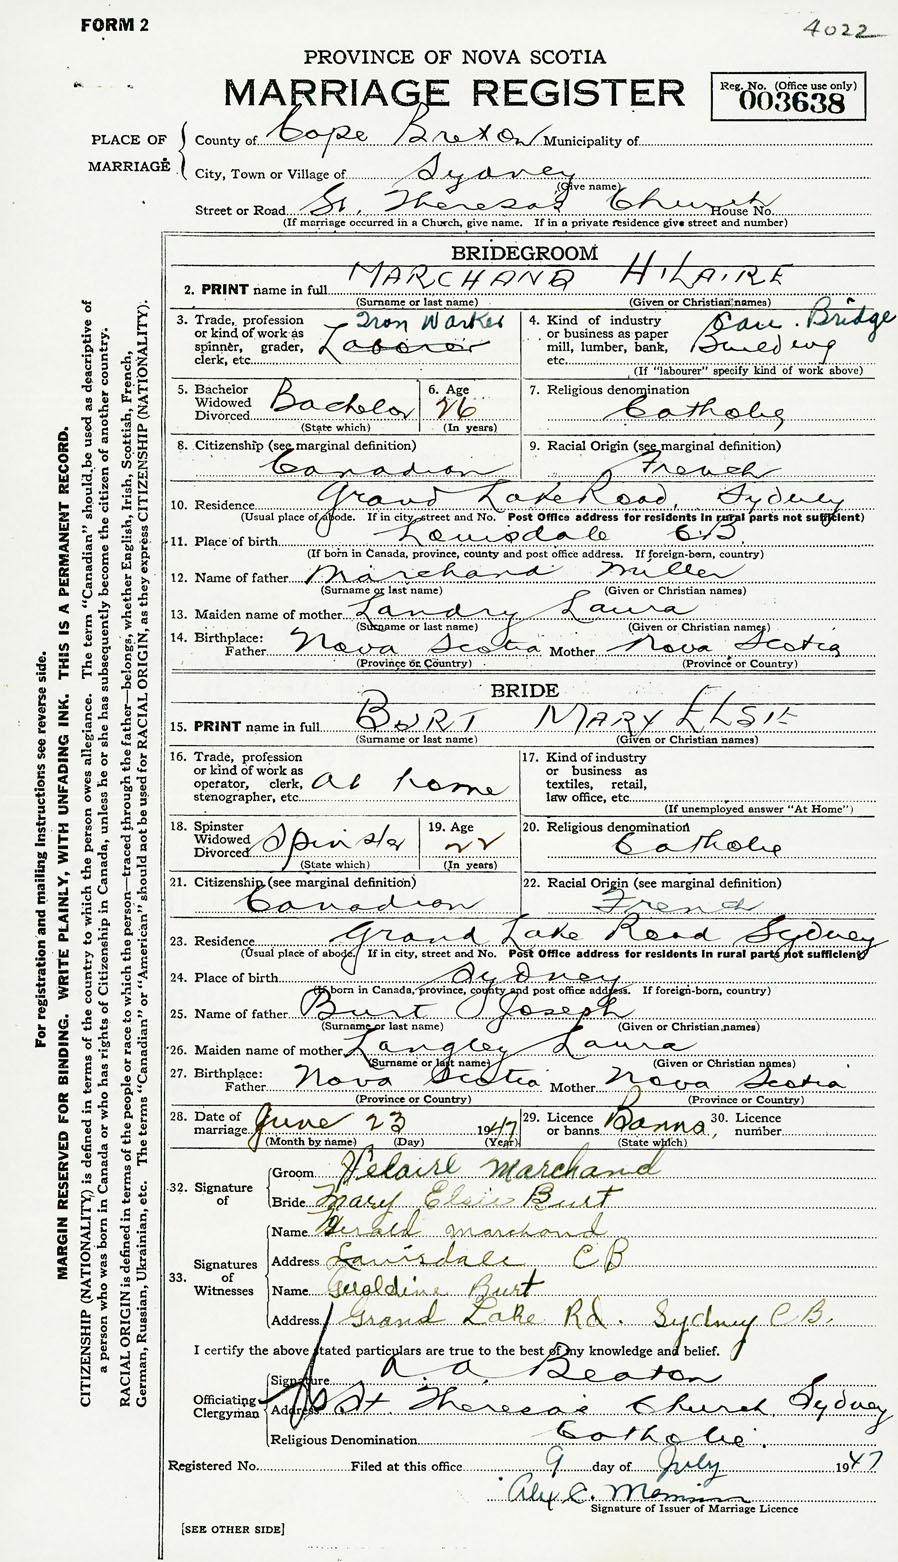 FORM 2
4022
PROVINCE OF NOVA SCOTIA
MARRIAGE REGISTER
Reg. No. (Office use only)
003638
PLACE OF MARRIAGE
County of Cape Breton Municipality of
City, Town or Village of Sydney
(Give name)
Street or Road St. Theresa's Church House No.
(If marriage occurred in a Church, give name. If in a private residence give street and number)
BRIDEGROOM
2. PRINT name in full MARCHAND HILAIRE
(Surname or last name) (Given or Christian names)
3. Trade, profession or kind of work as spinner, grader, clerk, etc. Iron Worker Laborer
4. Kind of industry or business as paper mill, lumber, bank, etc. Bridge Building
(If "labourer" specify kind of work above)
5. Bachelor Widowed Divorced Bachelor
(State which)
6. Age 26
(In years)
7. Religious denomination Catholic
8. Citizenship (see marginal definition) Canadian
9. Racial Origin (see marginal definition) French
10. Residence Grand Lake Road, Sydney
(Usual place of abode. If in city, street and No. Post Office address for residents in rural parts not sufficient)
11. Place of birth Louisdale C.B.
(If born in Canada, province, county and post office address. If foreign-born, country)
12. Name of father Marchand Miller
(Surname or last name) (Given or Christian names)
13. Maiden name of mother Landry Laura
(Surname or last name) (Given or Christian names)
14. Birthplace: Father Nova Scotia Mother Nova Scotia
(Province or Country) (Province or Country)
BRIDE
15. PRINT name in full BURT MARY ELSIE
(Surname or last name) (Given or Christian names)
16. Trade, profession or kind of work as operator, clerk, stenographer, etc. at home
17. Kind of industry or business as textiles, retail, law office, etc.
(If unemployed answer "At Home")
18. Spinster Widowed Divorced Spinster
(State which)
19. Age 22
(In years)
20. Religious denomination Catholic
21. Citizenship (see marginal definition) Canadian
22. Racial Origin (see marginal definition) French
23. Residence Grand Lake Road Sydney
(Usual place of abode. If in city, street and No. Post Office address for residents in rural parts not sufficient)
24. Place of birth Sydney
(If born in Canada, province, county and post office address. If foreign-born, country)
25. Name of father Burt Joseph
(Surname or last name) (Given or Christian names)
26. Maiden name of mother Langley Laura
(Surname or last name) (Given or Christian names)
27. Birthplace: Father Nova Scotia Mother Nova Scotia
(Province or Country) (Province or Country)
28. Date of marriage June 23 1947
(Month by name) (Day) (Year)
29. Licence or banns Banns
(State which)
30. Licence number
32. Signature of
Groom Helaire Marchand
Bride Mary Elsie Burt
33. Signatures of Witnesses
Name Gerald Marchand
Address Louisdale C B
Name Geraldine Burt
Address Grand Lake Rd. Sydney C B.
I certify the above stated particulars are true to the best of my knowledge and belief.
Officiating Clergyman
Signature A. A. Beaton
Address St. Theresa's Church, Sydney
Religious Denomination Catholic.
Registered No. Filed at this office 9 day of July 1947
Alex C.
Signature of Issuer of Marriage Licence
[SEE OTHER SIDE]
For registration and mailing instructions see reverse side.
MARGIN RESERVED FOR BINDING. WRITE PLAINLY, WITH UNFADING INK. THIS IS A PERMANENT RECORD.
CITIZENSHIP (NATIONALITY) is defined in terms of the country to which the person owes allegiance. The term "Canadian" should be used as descriptive of
a person who was born in Canada or who has rights of Citizenship in Canada, unless he or she has subsequently become the citizen of another country.
RACIAL ORIGIN is defined in terms of the people or race to which the person—traced through the father—belongs, whether English, Irish, Scottish, French,
German, Russian, Ukrainian, etc. The terms "Canadian" or "American" should not be used for RACIAL ORIGIN, as they express CITIZENSHIP (NATIONALITY).